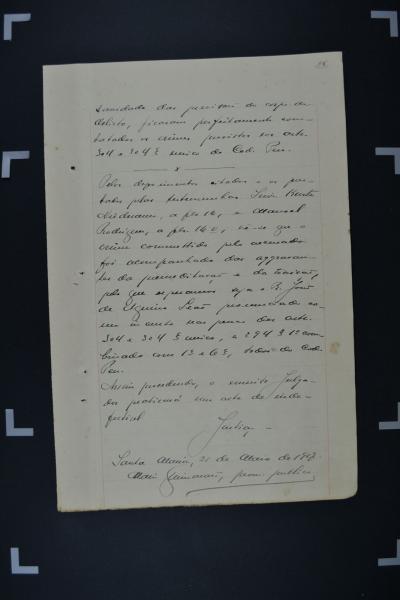 dos pericias de corpo de
delicto, ficaram perfeitamente com-
os crimes previstos nos arts.
304 e 304 § unico do Cod. Pen.
x
Pelos depoimentos citados e os pres-
tados pelas testemunhas
a fls 16, e Manoel
Rodrigues, a fls 16 v, vê-se que o
crime commettido pelo accusado
foi acompanhado das aggravan-
tes da premeditação e da traição,
pelo que esperamos seja o R. João
de Leão pronunciado co-
mo incurso nas penas dos arts.
304 e 304 § unico, e 294 § 1º com-
binado com 13 e 63, todos do Cod.
Pen.
Assim procedendo, o Julga-
dor praticará um acto de inde-
fectivel
Justiça -
Santa Maria, 21 de de
Guimarães, prom. publico